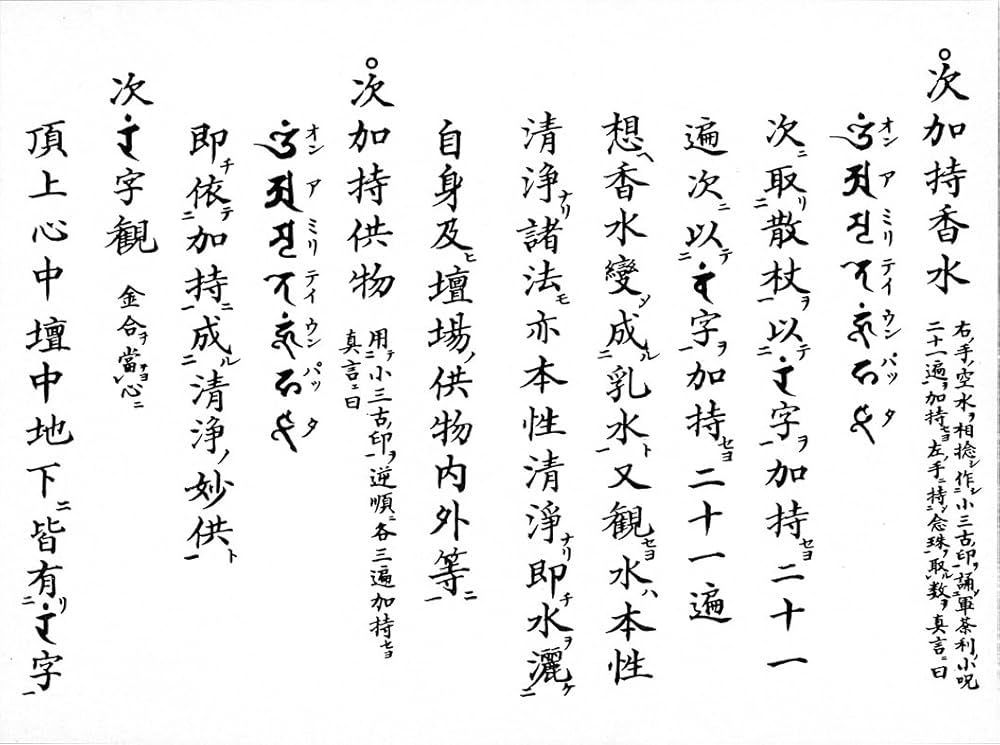 ○次加持香水
右ノ手ノ空水ヲ相捻シ作シ小三古ノ印ヲ誦シ軍荼利ノ小呪
二十一遍ヲ加持セヨ左ノ手ニ持シ念珠ヲ取ル数ヲ真言ニ曰
オン ア ミリ テイ ウン パッ タ
次ニ取リ二散杖ヲ一以テ二𑖨𑖽字ヲ一加持セヨ二十一
遍次ニ以テ二𑖪𑖽字ヲ一加持セヨ二十一遍
想ヘ香水變シ成ル二乳水ト一又観セヨ水ハ本性
清浄ナリ諸法モ亦本性清浄ナリ即チ水ヲ灑ケ二
自身及ヒ壇場ノ供物内外等ニ一
○次加持供物
用テ二小三古ノ印ヲ一逆順ニ各三遍加持セヨ
真言ニ曰
オン ア ミリ テイ ウン パッ タ
即チ依テ二加持ニ一成ル二清浄ノ妙供ト一
次𑖨𑖽字観 金合ヲ當ヨ心ニ
頂上心中壇中地下ニ皆有リ二𑖨𑖽字一